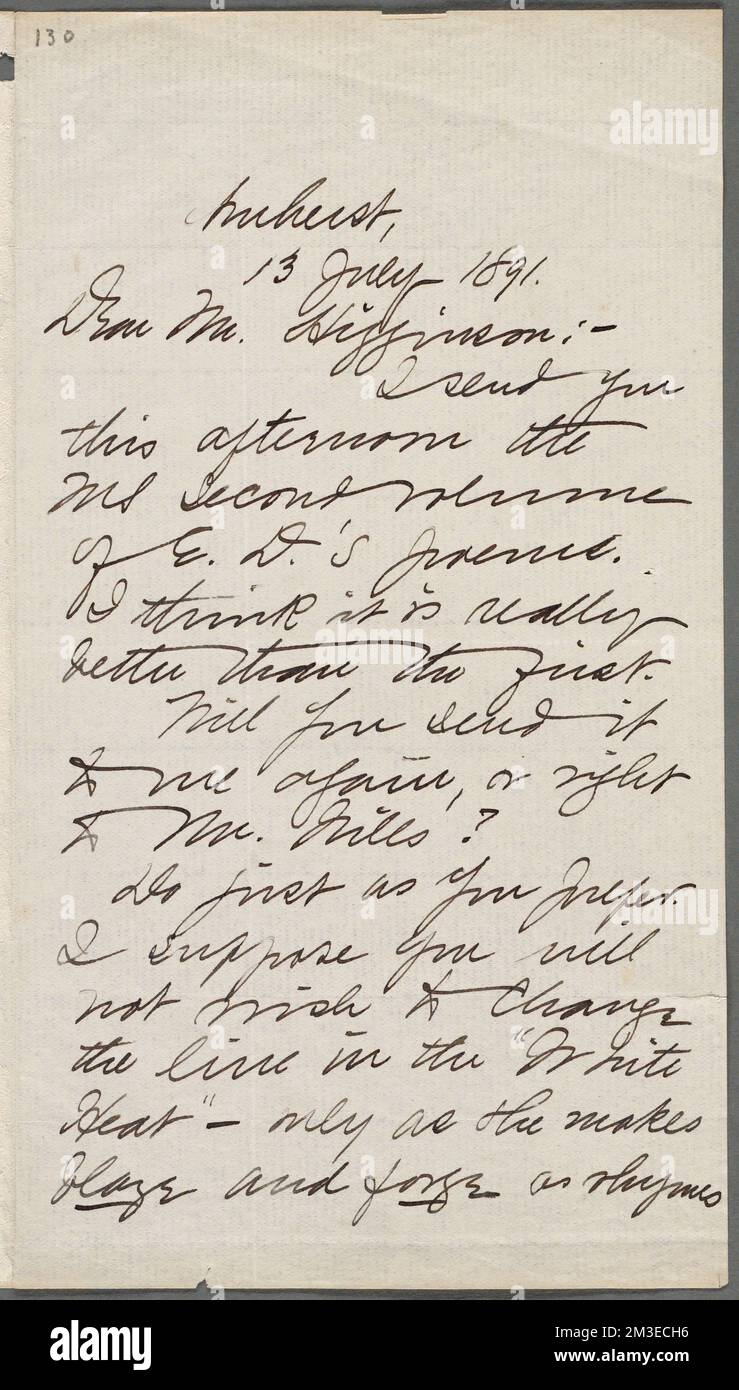 130
Amherst,
13 July 1891.
Dear Mr. Higginson:-
I send you
this afternoon the
MS second volume
of E. D.'s poems.
I think it is really
better than the first.
Will you send it
to me again, or right
to Mr. Niles?
Do just as you prefer.
I suppose you will
not wish to change
the line in the "White
Heat" - only as she makes
blaze and forge as rhymes
alamy
Image ID: 2M3ECH6
www.alamy.com